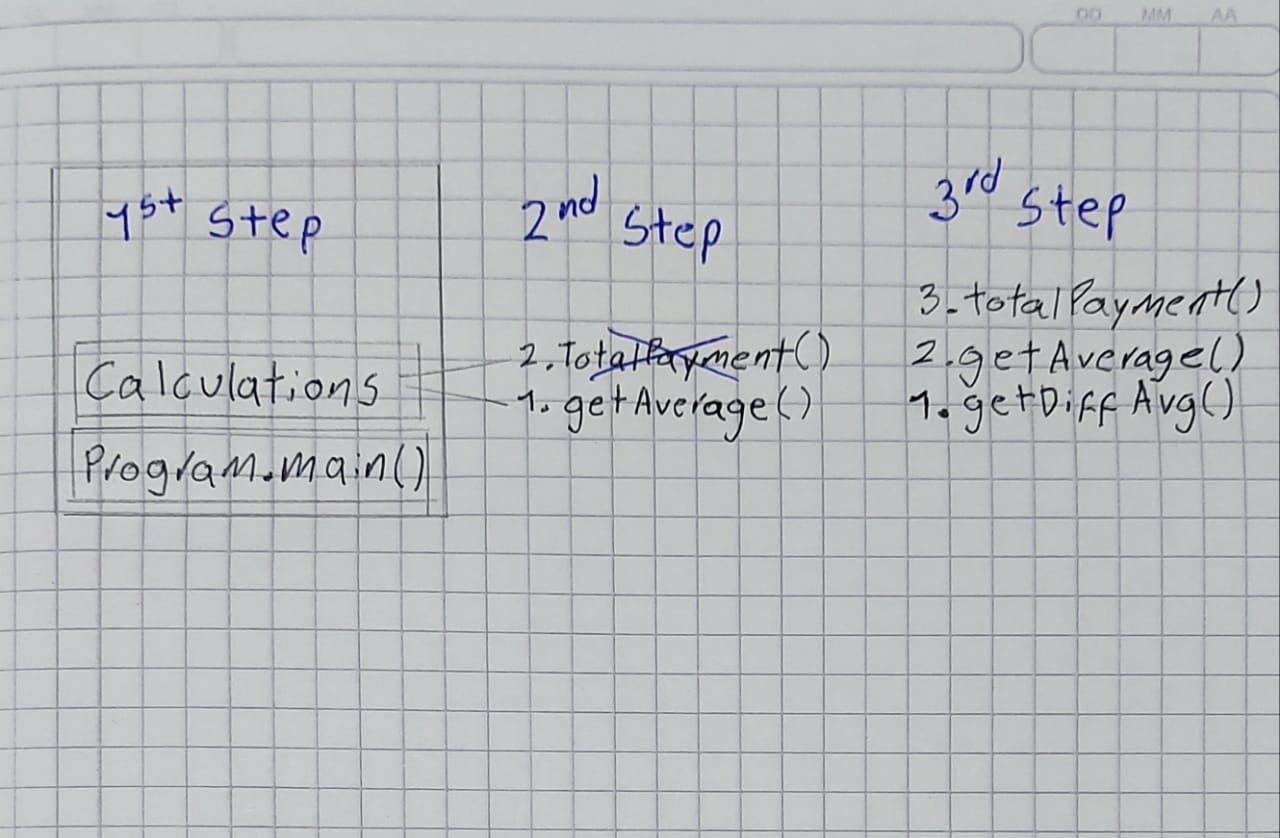 DD MM AA
1st Step
Calculations
Program.main()
2nd Step
2. TotalPayment()
1. getAverage()
3rd Step
3. totalPayment()
2. getAverage()
1. getDiffAvg()